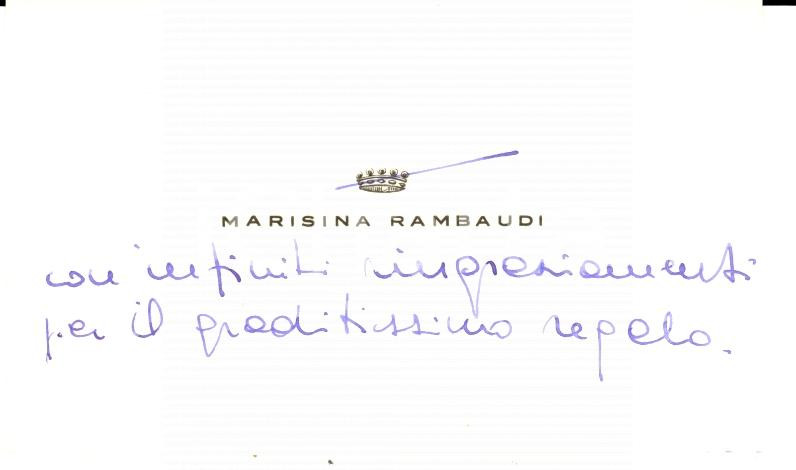 MARISINA RAMBAUDI
con infiniti ringraziamenti
per il graditissimo regalo.